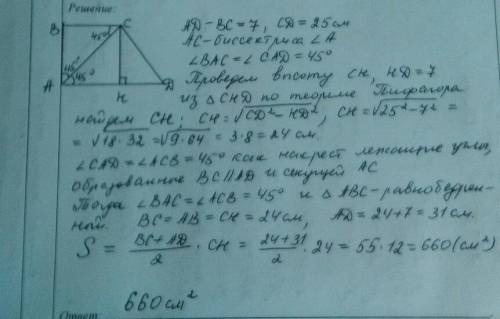 Решение:
B 45° C
A 45° 45° H D
AD-BC=7, CD=25см
AC-биссектриса ∠A
∠BAC=∠CAD=45°
Проведем высоту CH, HD=7
из △CHD по теореме Пифагора
найдем CH: CH=√(CD²-HD²), CH=√(25²-7²)=
=√(18·32)=√(9·64)=3·8=24 см.
∠CAD=∠ACB=45° как накрест лежащие углы,
образованные BC∥AD и секущей AC
Тогда ∠BAC=∠ACB=45° и △ABC-равнобедрен-
ный. BC=AB=CH=24см, AD=24+7=31 см.
S = (BC+AD)/2 · CH = (24+31)/2 · 24 = 55·12=660(см²)
660 см²
Ответ